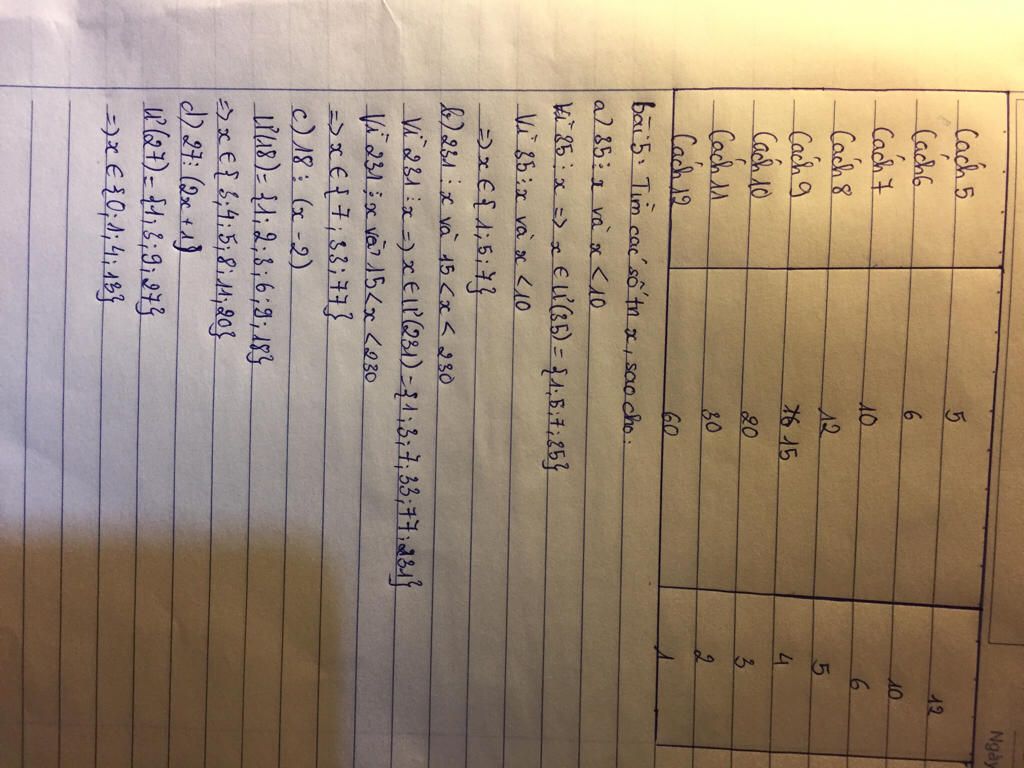 Ngày
Cách 5 5 12
Cách 6 6 10
Cách 7 10 6
Cách 8 12 5
Cách 9 15 4
Cách 10 20 3
Cách 11 30 2
Cách 12 60 1
Bài 5: Tìm các số tn x, sao cho:
a) 35 ⋮ x và x < 10
Vì 35 ⋮ x => x ∈ Ư(35) = {1; 5; 7; 35}
Vì 35 ⋮ x và x < 10
=> x ∈ {1; 5; 7}
b) 231 ⋮ x và 15 < x < 230
Vì 231 ⋮ x => x ∈ Ư(231) = {1; 3; 7; 33; 77; 231}
Vì 231 ⋮ x và 15 < x < 230
=> x ∈ {7; 33; 77}
c) 18 ⋮ (x - 2)
Ư(18) = {1; 2; 3; 6; 9; 18}
=> x ∈ {3; 4; 5; 8; 11; 20}
d) 27 ⋮ (2x + 1)
Ư(27) = {1; 3; 9; 27}
=> x ∈ {0; 1; 4; 13}